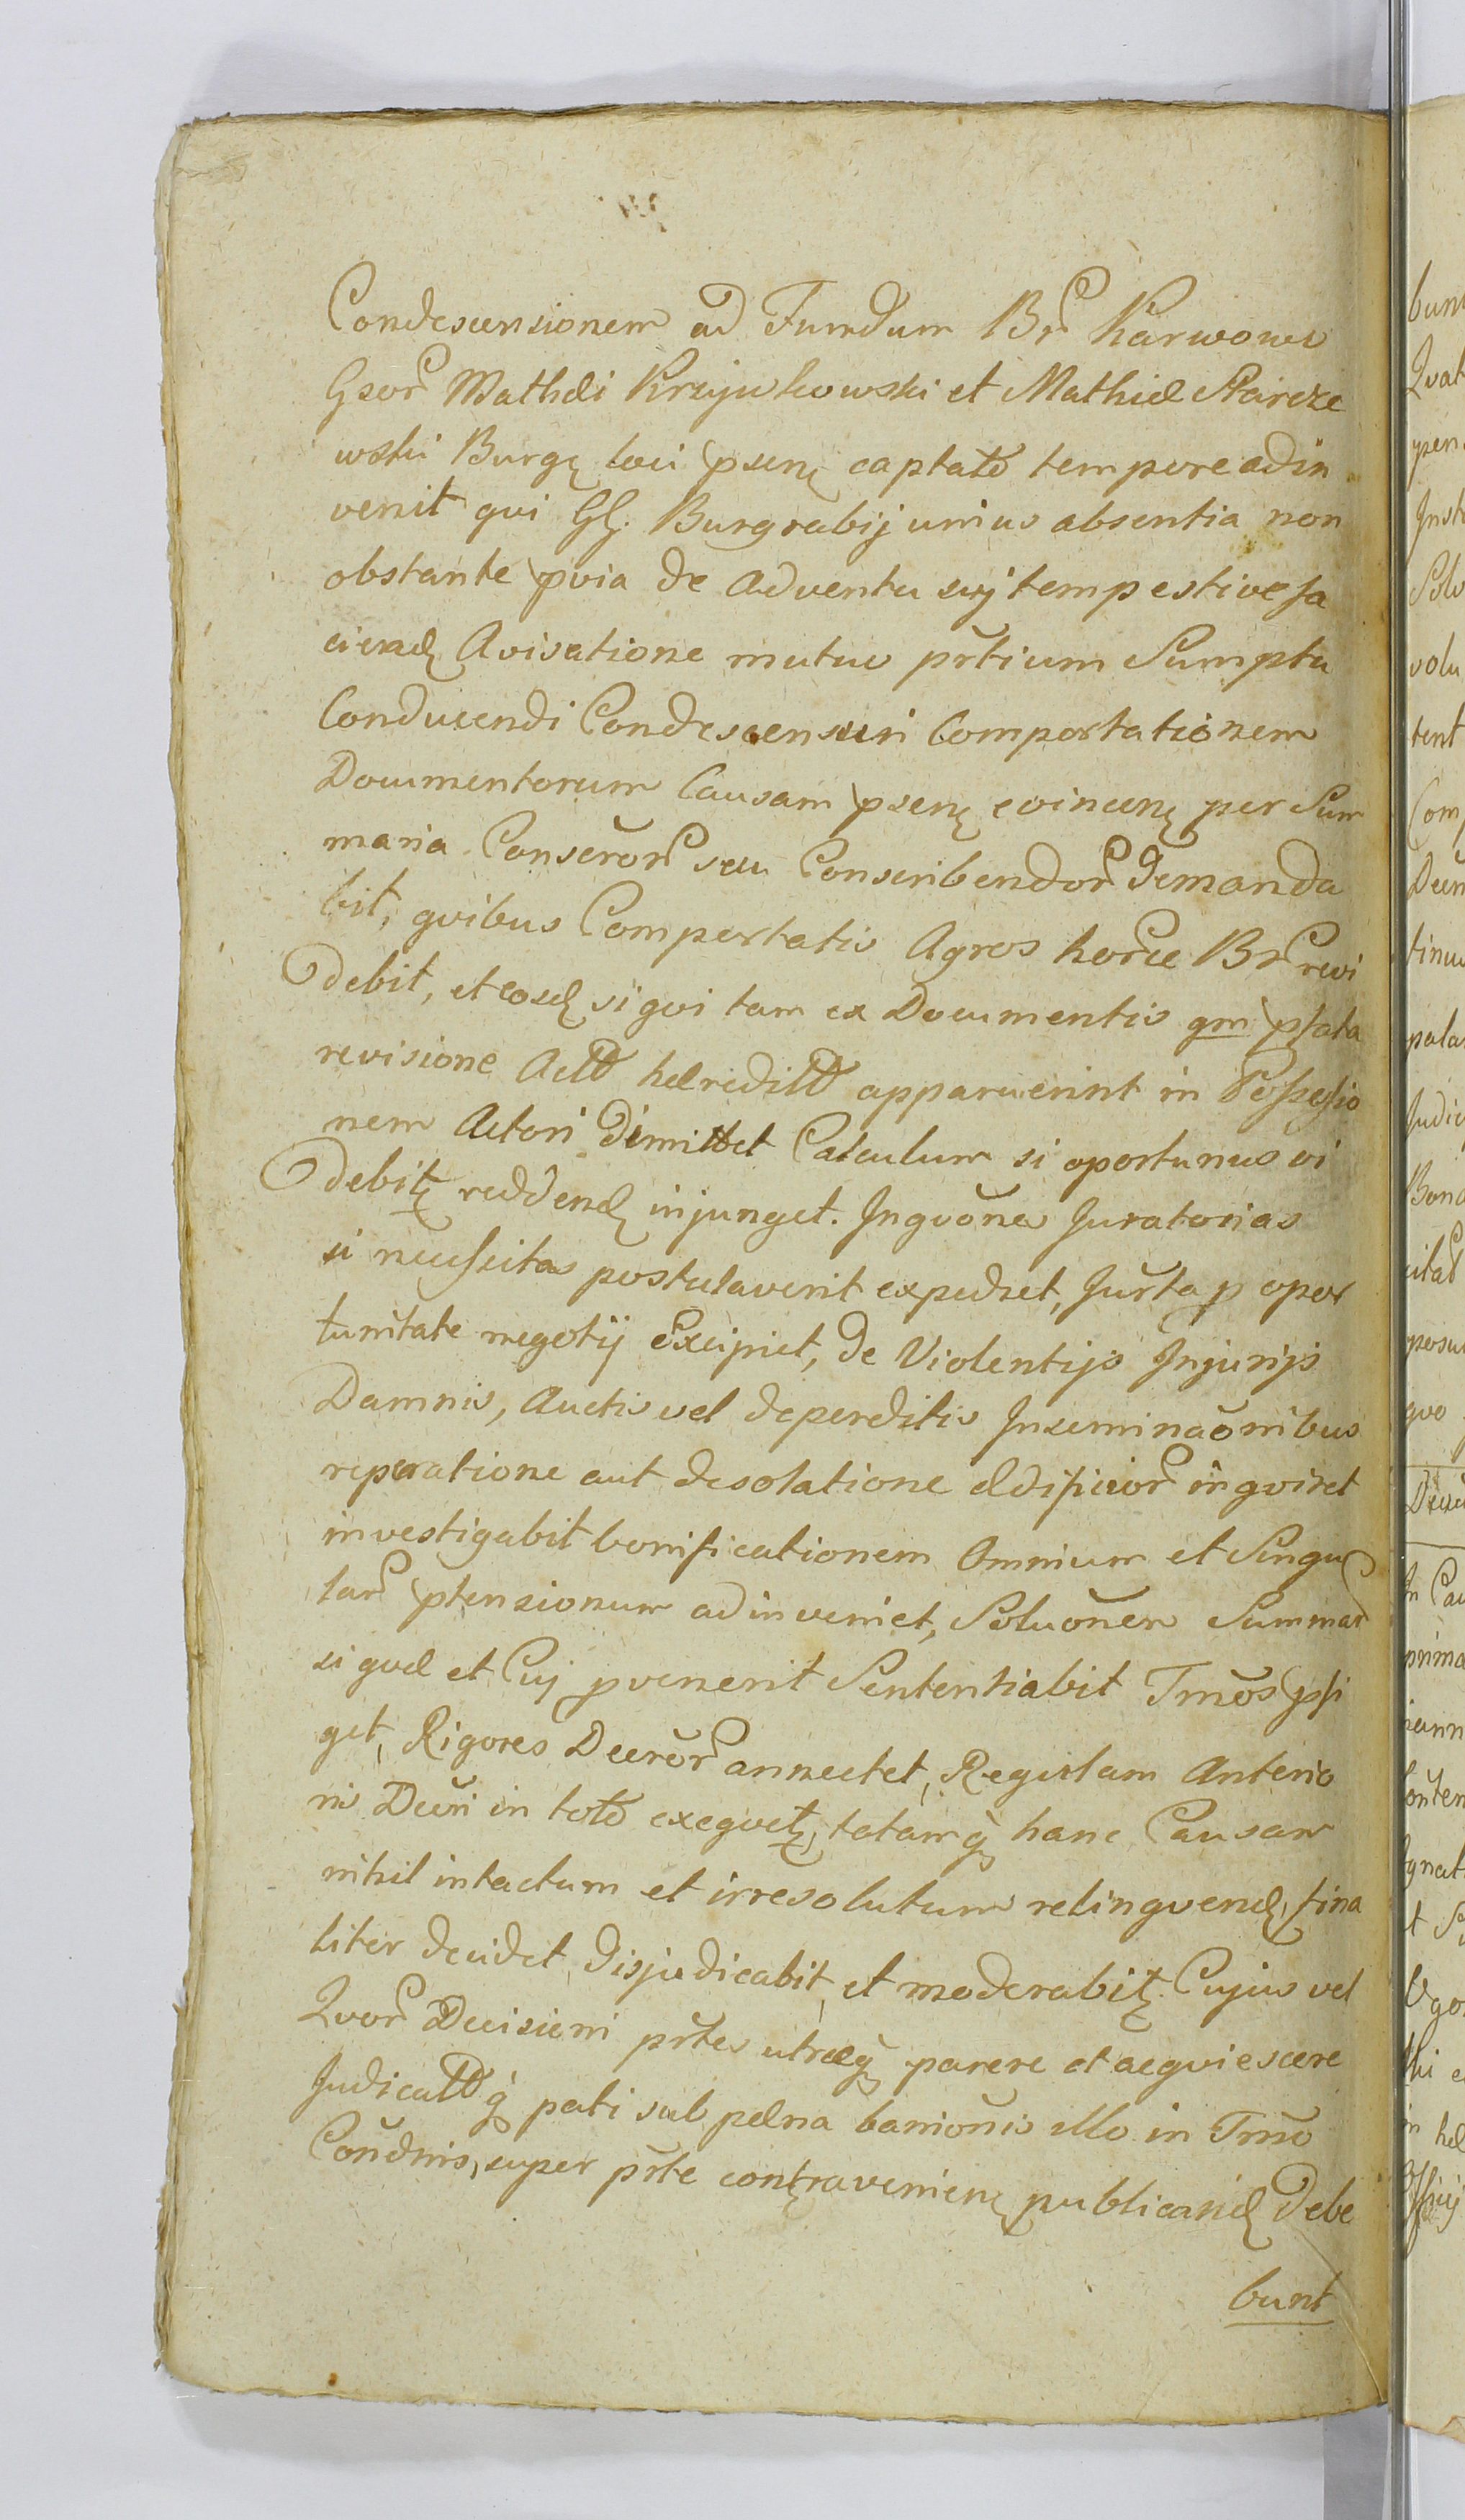 Condescensionem ad Fundum Br̃ Karwowo
Gsor̃ Mathæi Krzywkowski et Mathiæ
wski Burgę loci pseñ captato tempore adin
venit qui Gſ. Burgrabij unius absentia non
obstante pvia de Adventu suj tempestive fa
ciendę Avisatione mutuo pr̃tium Sumptu
Conducendi Condescensuri Comportationem
Documentorum Causam psenę evincenę per Sum
maria Conscr̃or̃ seu Conscribendor̃ demanda
bit, qvibus Comportatis Agros horce Br̃ revi
debit, et eosdę si qvi tam ex Documentis qm̃ pfata
revisione Actto hæreditto apparuerint in Possessio
nem Actori dimittet Calculum si oportunus vi
debitę reddendę injunget. Inqvõnes Juratorias
si necessitas postulaverit expediet, Jur̃ta p opor
tunitate negotij Excipiet, de Violentijs Injurijs
Damnis, Auctis vel deperditis Inseminaõnibus
reparatione aut desolatione ædificior̃ inqviret
investigabit bonificationem Omnium et Singu
lar̃ ptensionum adinveniet, Soluõnem Summar̃
si qvæ et Cuj pvenerit Sententiabit Tmõs pfi
get, Rigores Decr̃or̃ annectet, Regulam Anterio
ris Decr̃i in toto exeqvetę, totamq̨ hanc Causam
nihil intactum et irresolutum relinqvendę, fina
liter decidet, disjudicabit, et moderabitę. Cujus vel
Qvor̃ Decisioni pr̃tes utræq̨ parere et acqviescere
Judicattoq̨ pati sub pæna baniõnis illo in Tmõ
Coñdnis, super pr̃te contravenienę publicandę debe
bunt